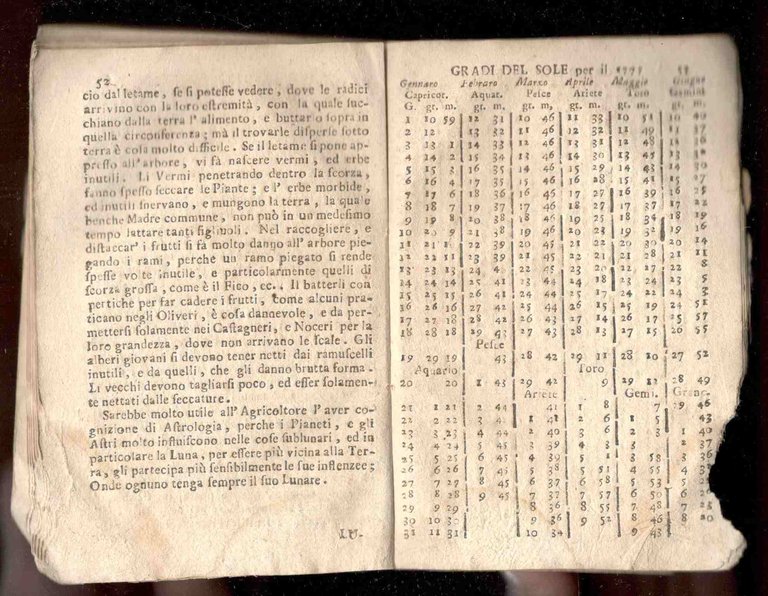 52
cio dal letame, se si potesse vedere, dove le radici
arrivino con la loro estremità, con la quale suc-
chiano dalla terra l' alimento, e buttarlo sopra in
quella circonferenza; mà il trovarle disperse sotto
terra è cosa molto difficile. Se il letame si pone ap-
presso all' arbore, vi fà nascere vermi, ed erbe
inutili. Li Vermi penetrando dentro la scorza,
fanno spesso seccare le Piante; e l' erbe morbide,
ed inutili snervano, e mungono la terra, la quale
benche Madre commune, non può in un medesimo
tempo lattare tanti figliuoli. Nel raccogliere, e
distaccar' i frutti si fà molto danno all' arbore pie-
gando i rami, perche un ramo piegato si rende
spesse volte inutile, e particolarmente quelli di
scorza grossa, come è il Fico, ec.. Il batterli con
pertiche per far cadere i frutti, come alcuni pra-
ticano negli Oliveri, è cosa dannevole, e da per-
mettersi solamente nei Castagneri, e Noceri per la
loro grandezza, dove non arrivano le scale. Gli
alberi giovani si devono tener netti dai ramuscelli
inutili, e da quelli, che gli danno brutta forma.
Li vecchi devono tagliarsi poco, ed esser solamen-
te nettati dalle seccature.
Sarebbe molto utile all' Agricoltore l' aver co-
gnizione di Astrologia, perche i Pianeti, e gli
Astri molto influiscono nelle cose sublunari, ed in
particolare la Luna, per essere più vicina alla Ter-
ra, gli partecipa più sensibilmente le sue influenze;
Onde ognuno tenga sempre il suo Lunare.
LU-
GRADI DEL SOLE per il
Gennaro Febraro Marzo Aprile Maggio
Capricor. Aquar. Pesce Ariete Toro
G. gt. m. gt. m. gt. m, gt. m. gt. m. gt. m.
1 10 59 12 31 10 46 11 33 10 51 10 40
2 12 13 32 11 46 12 32 11 49 11 37
3 13 1 14 33 12 46 13 31 12 48
4 14 2 15 34 13 46 14 30 13 45
5 15 3 16 35 14 46 15 29 14 43 14 30
6 16 4 17 35 15 46 16 28 15 41 15 27
7 17 6 18 36 16 46 17 27 16 39 16 25
8 18 7 19 37 17 46 18 26 17 37 17 22
9 19 8 20 38 18 46 19 25 18 34 18 19
10 20 9 21 38 19 46 20 24 19 32 19 16
11 21 22 39 20 45 21 21 20 30 20 14
12 22 11 23 39 21 45 22 21 21
13 23 13 24 4 22 45 23 23 8
14 24 14 25 41 23 44 24 23 24 23 5
15 25 15 26 41 24 44 25 24 22 24 3
16 26 16 27 42 25 44 26 15 25 19 24 57
17 27 18 28 42 26 43 27 14 26 17 25 57
18 28 18 29 43 27 43 28 13 27 15 26 55
Pesce
19 29 19 43 28 42 29 11 28 10 27 52
Aquario Toro
20 20 1 43 29 42 9 29 12 28 49
Ariete Gem.
21 1 21 2 44 41 1 8 7 29 46
22 2 3 1 41 2 6 1 43
23 3 23 4 44 2 40 3 6 2 3 1 40
24 4 24 5 45 3 39 4 3 3 2 37
25 5 25 6 45 4 39 5 1 3 58 3 36
26 6 26 7 45 5 38 5 51 4 55 4
27 7 27 8 45 6 37 6 58 5 53 5
28 8 28 9 45 7 37 7 57 6 50 6
29 9 29 8 36 8 55 7 48 7
30 10 30 9 36 9 52 8 46 8 20
31 11 31 10 34 9 43